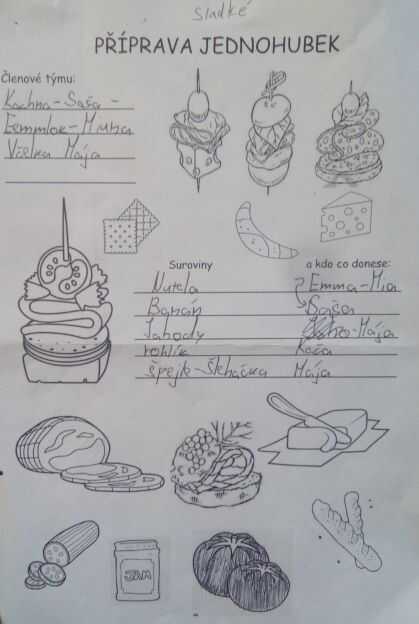 Sladké
PŘÍPRAVA JEDNOHUBEK
Členové týmu:
Kachna-Saša -
Včelka Mája
Suroviny a kdo co donese:
Nutela Emma-Mia
Banán Saša
Jahody Mája
rohlík Kača
špejle-Šlehačka Mája
JAM